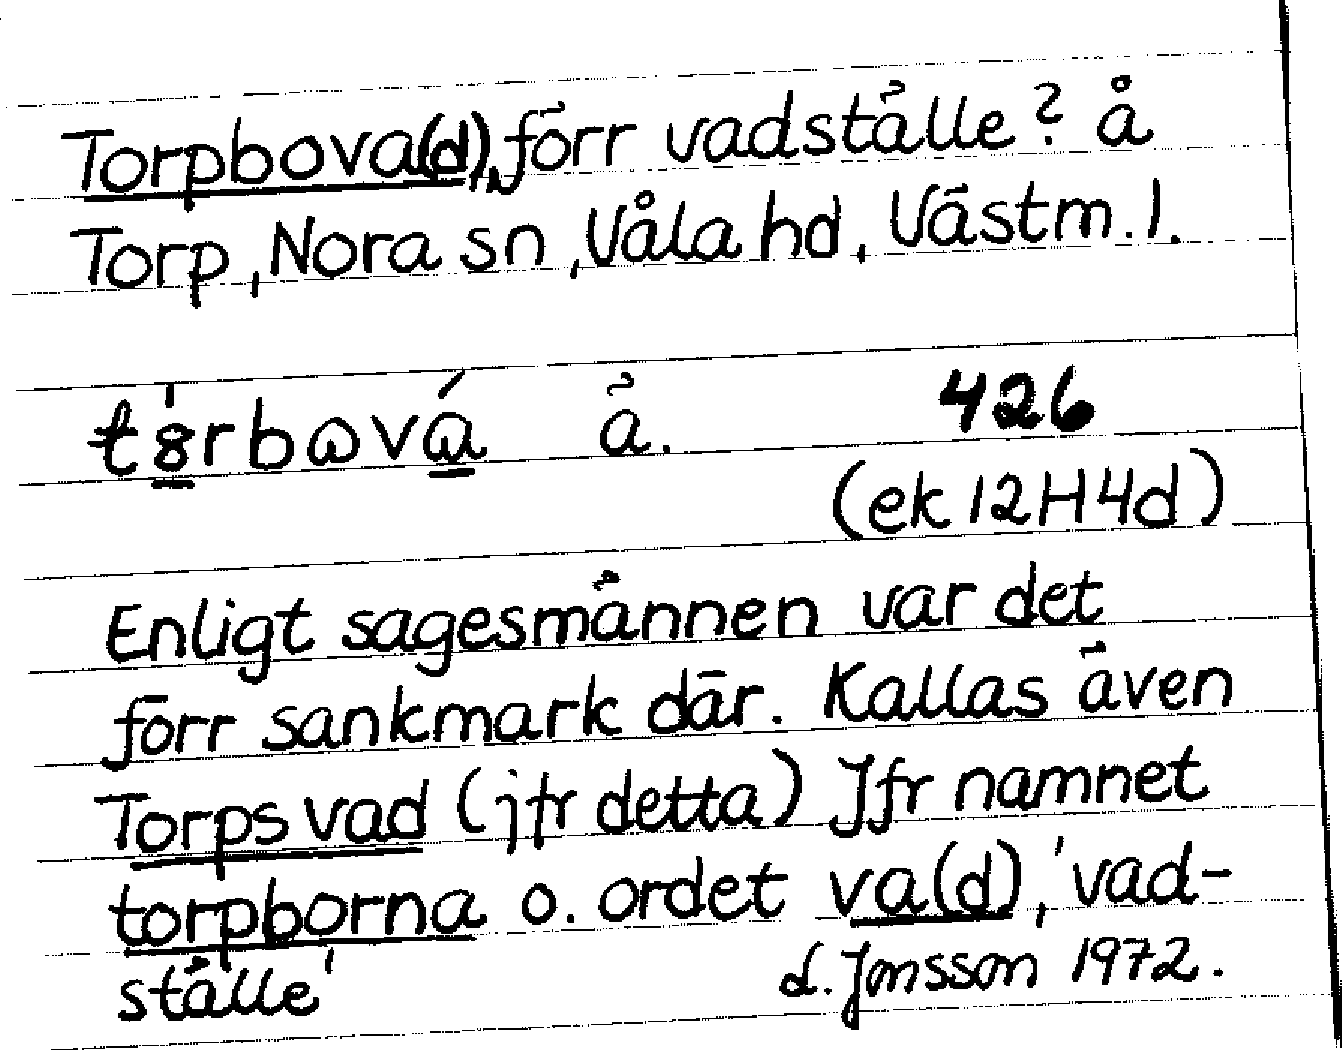 Torpbova(d), förr vadställe? å
Torp, Nora sn, Våla hd, Västm. l.
å. 426
(ek 12H4d)
Enligt sagesmännen var det
förr sankmark där. Kallas även
Torps vad (jfr detta) Jfr namnet
torpborna o. ordet va(d), 'vad-
ställe' d. Jonsson 1972.